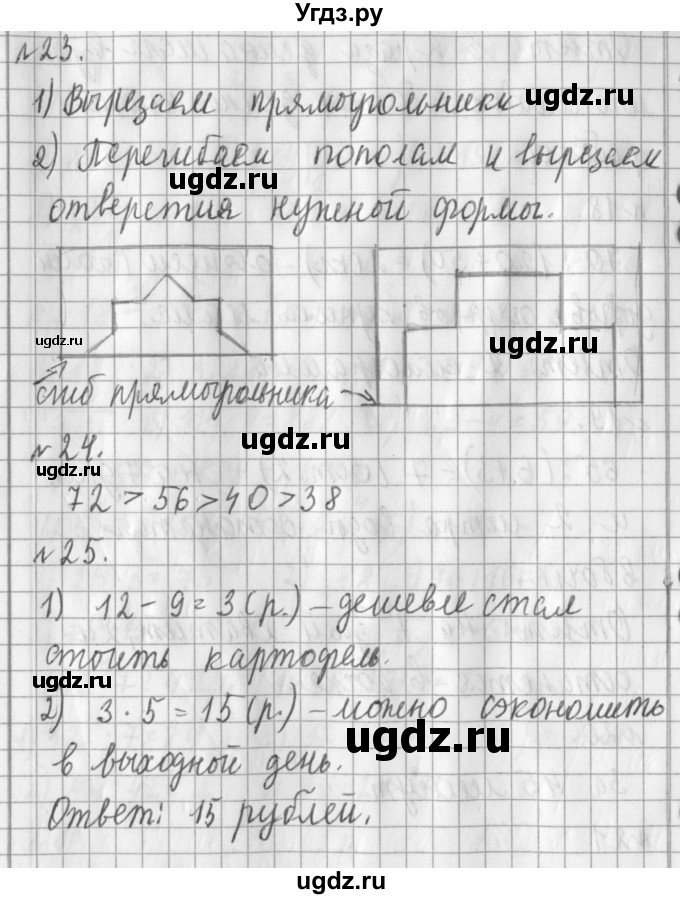 Угдз.ру
№23.
1) Вырезаем прямоугольники
ugdz.ru
2) Перегибаем пополам и вырезаем
ugdz.ru
ugdz.ru
отверстия нужной формы.
ugdz.ru
ugdz.ru
сгиб прямоугольника
ugdz.ru
№24.
72 > 56 > 40 > 38
ugdz.ru
№25.
ugdz.ru
1) 12 - 9 = 3 (р.) – дешевле стал
стоить картофель.
ugdz.ru
2) 3 · 5 = 15 (р.) – можно сэкономить
ugdz.ru
в выходной день.
Ответ: 15 рублей.
ugdz.ru
ugdz.ru